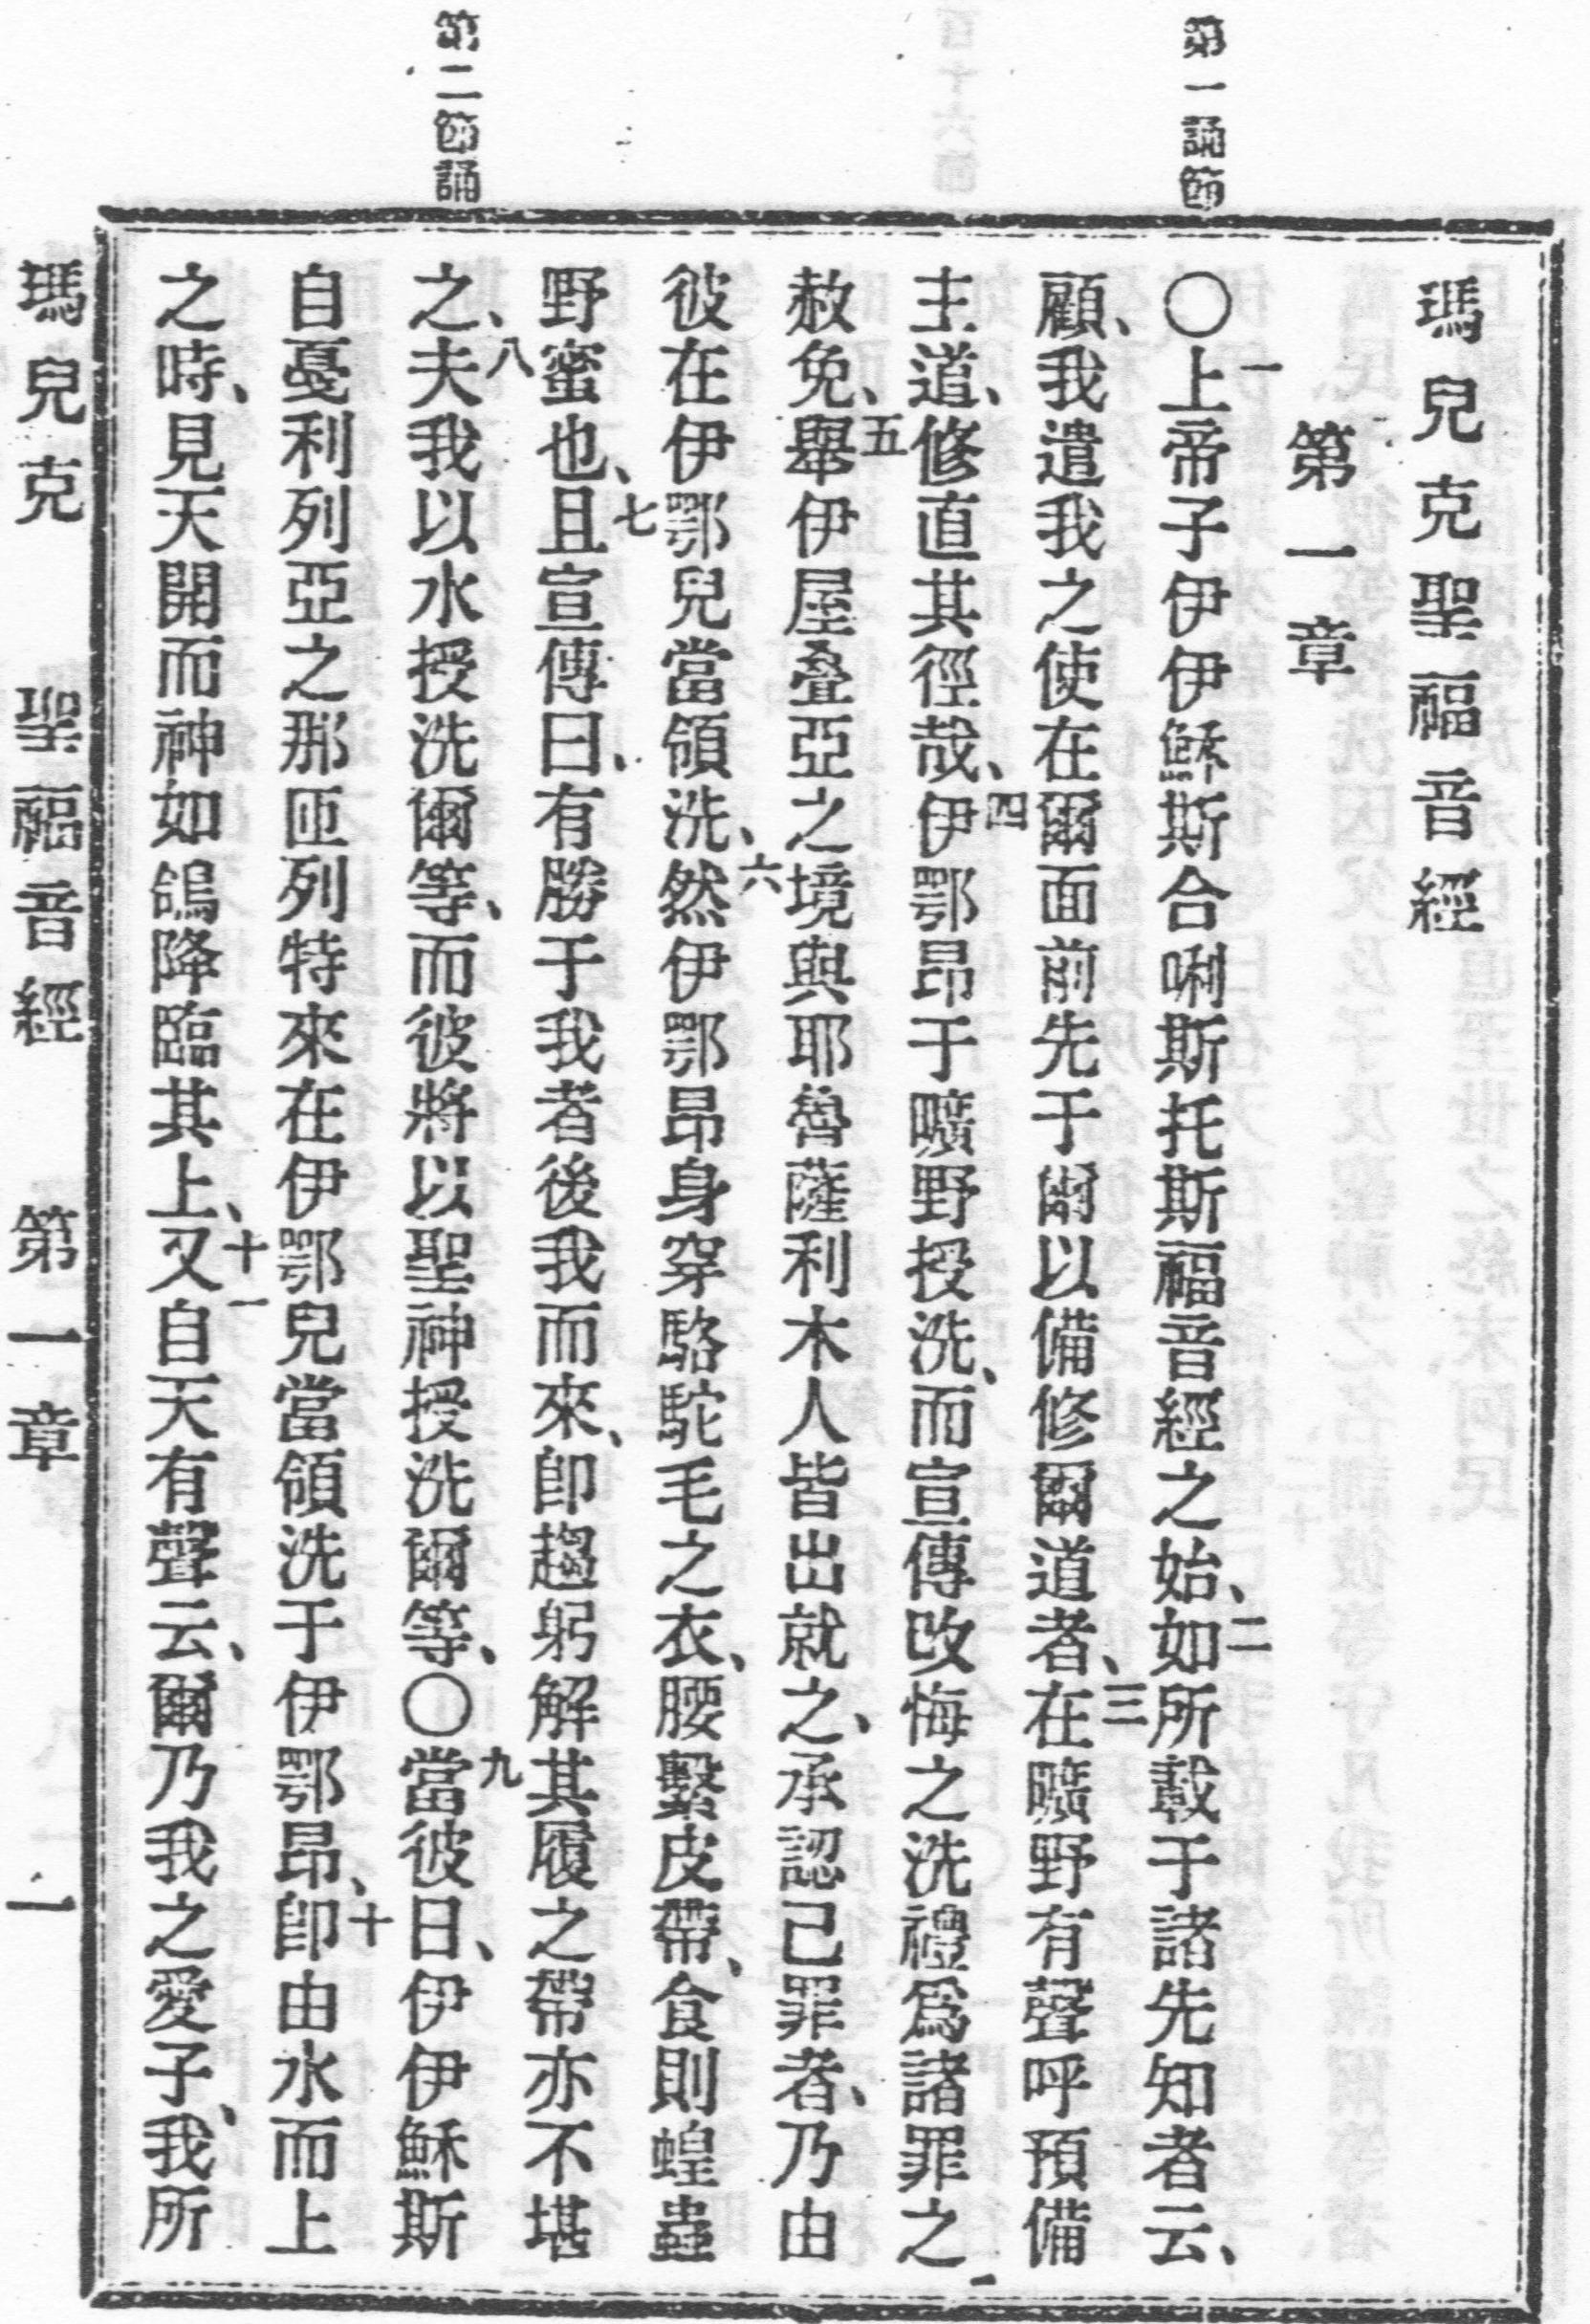 第一誦節
第二節誦
瑪兒克聖福音經
第一章
〇一上帝子伊伊穌斯合唎斯托斯福音經之始、二如所載于諸先知者云、
顧、我遣我之使在爾面前先于爾以備修爾道者、三在曠野有聲呼預備
主道、修直其徑哉、四伊鄂昂于曠野授洗、而宣傳改悔之洗禮爲諸罪之
赦免、五舉伊屋叠亞之境與耶魯薩利木人皆出就之、承認己罪者、乃由
彼在伊鄂兒當領洗、六然伊鄂昂身穿駱駝毛之衣、腰繫皮帶、食則蝗蟲
野蜜也、七且宣傳曰、有勝于我者後我而來、卽趨躬解其履之帶亦不堪
之、八夫我以水授洗爾等、而彼將以聖神授洗爾等、〇九當彼日、伊伊穌斯
自戞利列亞之那匝列特來在伊鄂兒當領洗于伊鄂昂、十卽由水而上
之時、見天開而神如鴿降臨其上、十一又自天有聲云、爾乃我之愛子、我所
瑪兒克 聖福音經 第一章 一